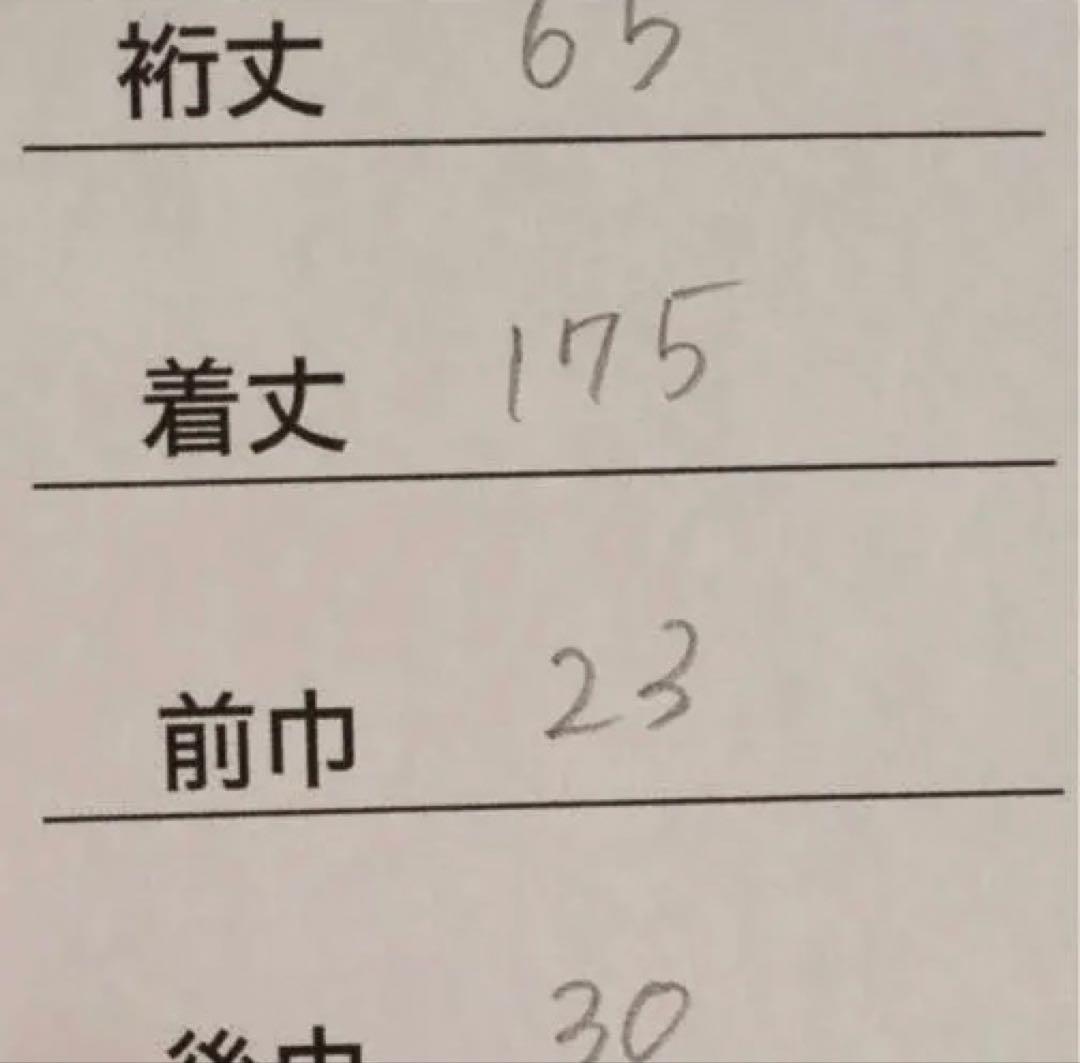 裄丈 65
着丈 175
前巾 23
後巾 30